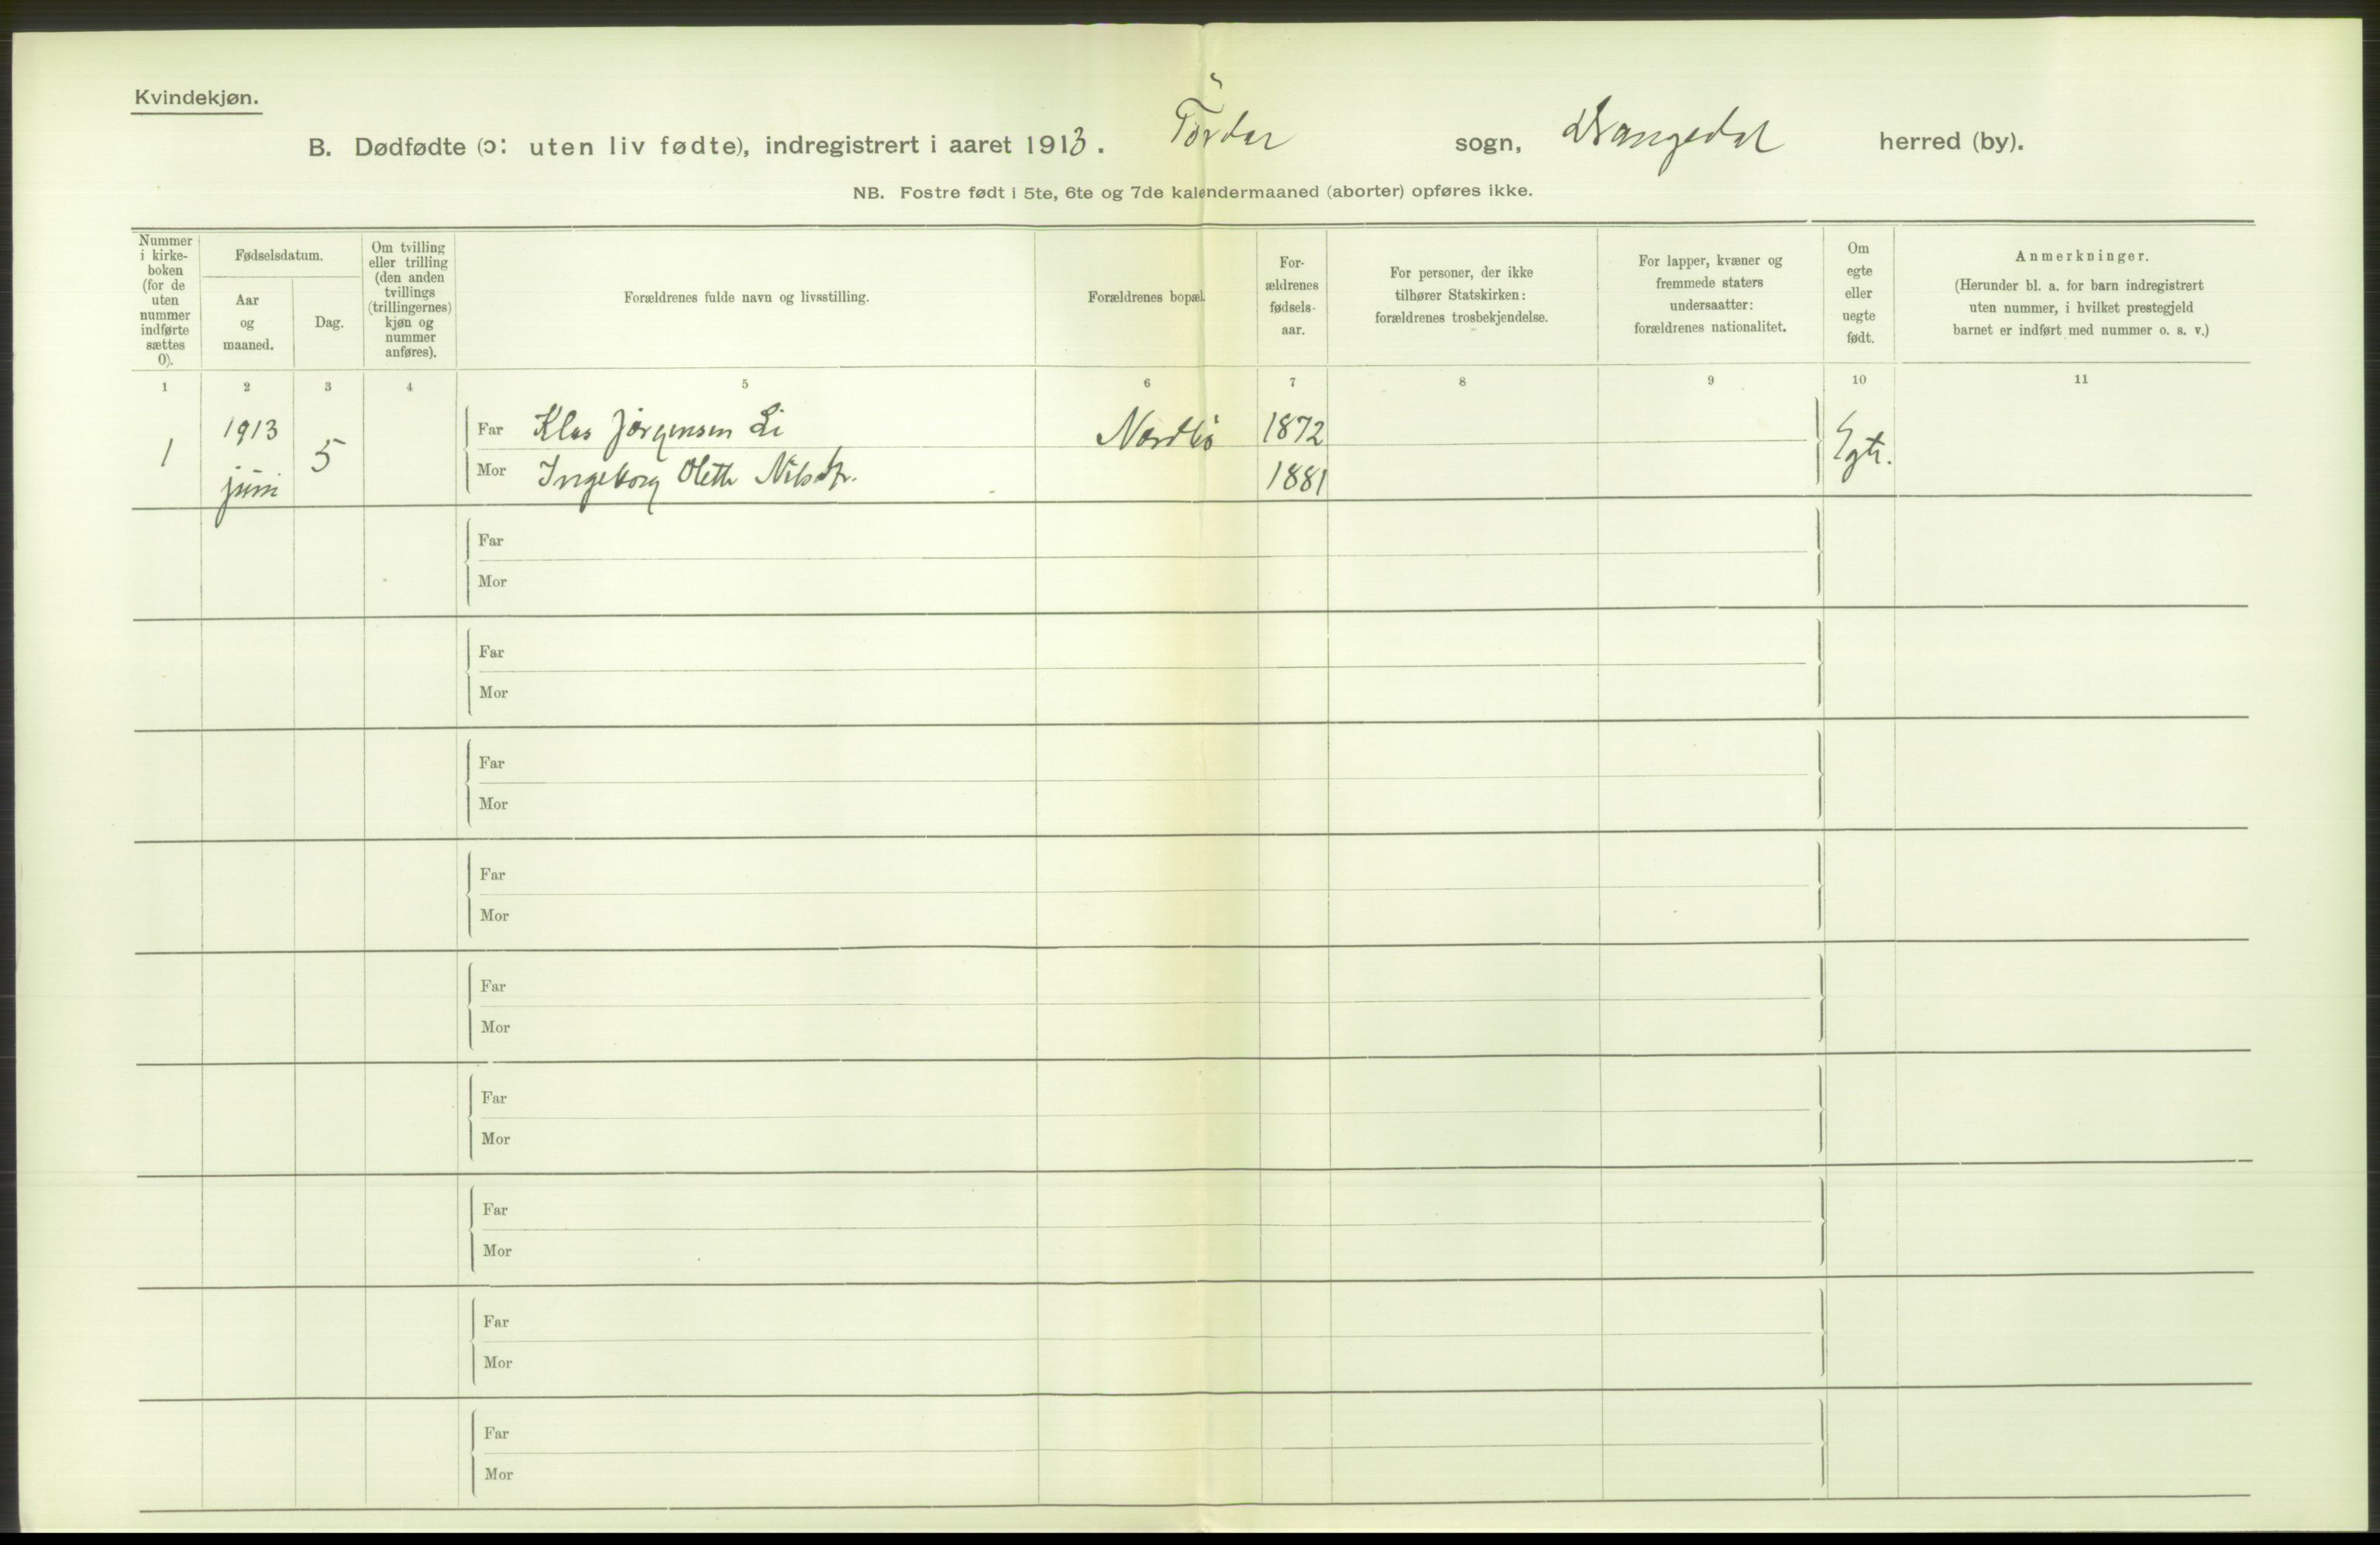 Kvindekjøn.
B. Dødfødte (ɔ: uten liv fødte), indregistrert i aaret 1913. Tørdal sogn, Drangedal herred (by).
NB. Fostre født i 5te, 6te og 7de kalendermaaned (aborter) opføres ikke.
Nummer
i kirke-
boken
(for de
uten
nummer
indførte
sættes
0).
Fødselsdatum.
Aar
og
maaned.
Dag.
Om tvilling
eller trilling
(den anden
tvillings
(trillingernes)
kjøn og
nummer
anføres).
Forældrenes fulde navn og livsstilling.
Forældrenes bopæl.
For-
ældrenes
fødsels-
aar.
For personer, der ikke
tilhører Statskirken:
forældrenes trosbekjendelse.
For lapper, kvæner og
fremmede staters
undersaatter:
forældrenes nationalitet.
Om
egte
eller
uegte
født.
Anmerkninger.
(Herunder bl. a. for barn indregistrert
uten nummer, i hvilket prestegjeld
barnet er indført med nummer o. s. v.)
1 2 3 4 5 6 7 8 9 10 11
1 1913 juni 5
Far Klas Jørgensen Li Nordbø 1872 Egte.
Mor Ingeborg Olette Nilsdtr. 1881
Far
Mor
Far
Mor
Far
Mor
Far
Mor
Far
Mor
Far
Mor
Far
Mor
Far
Mor
Far
Mor